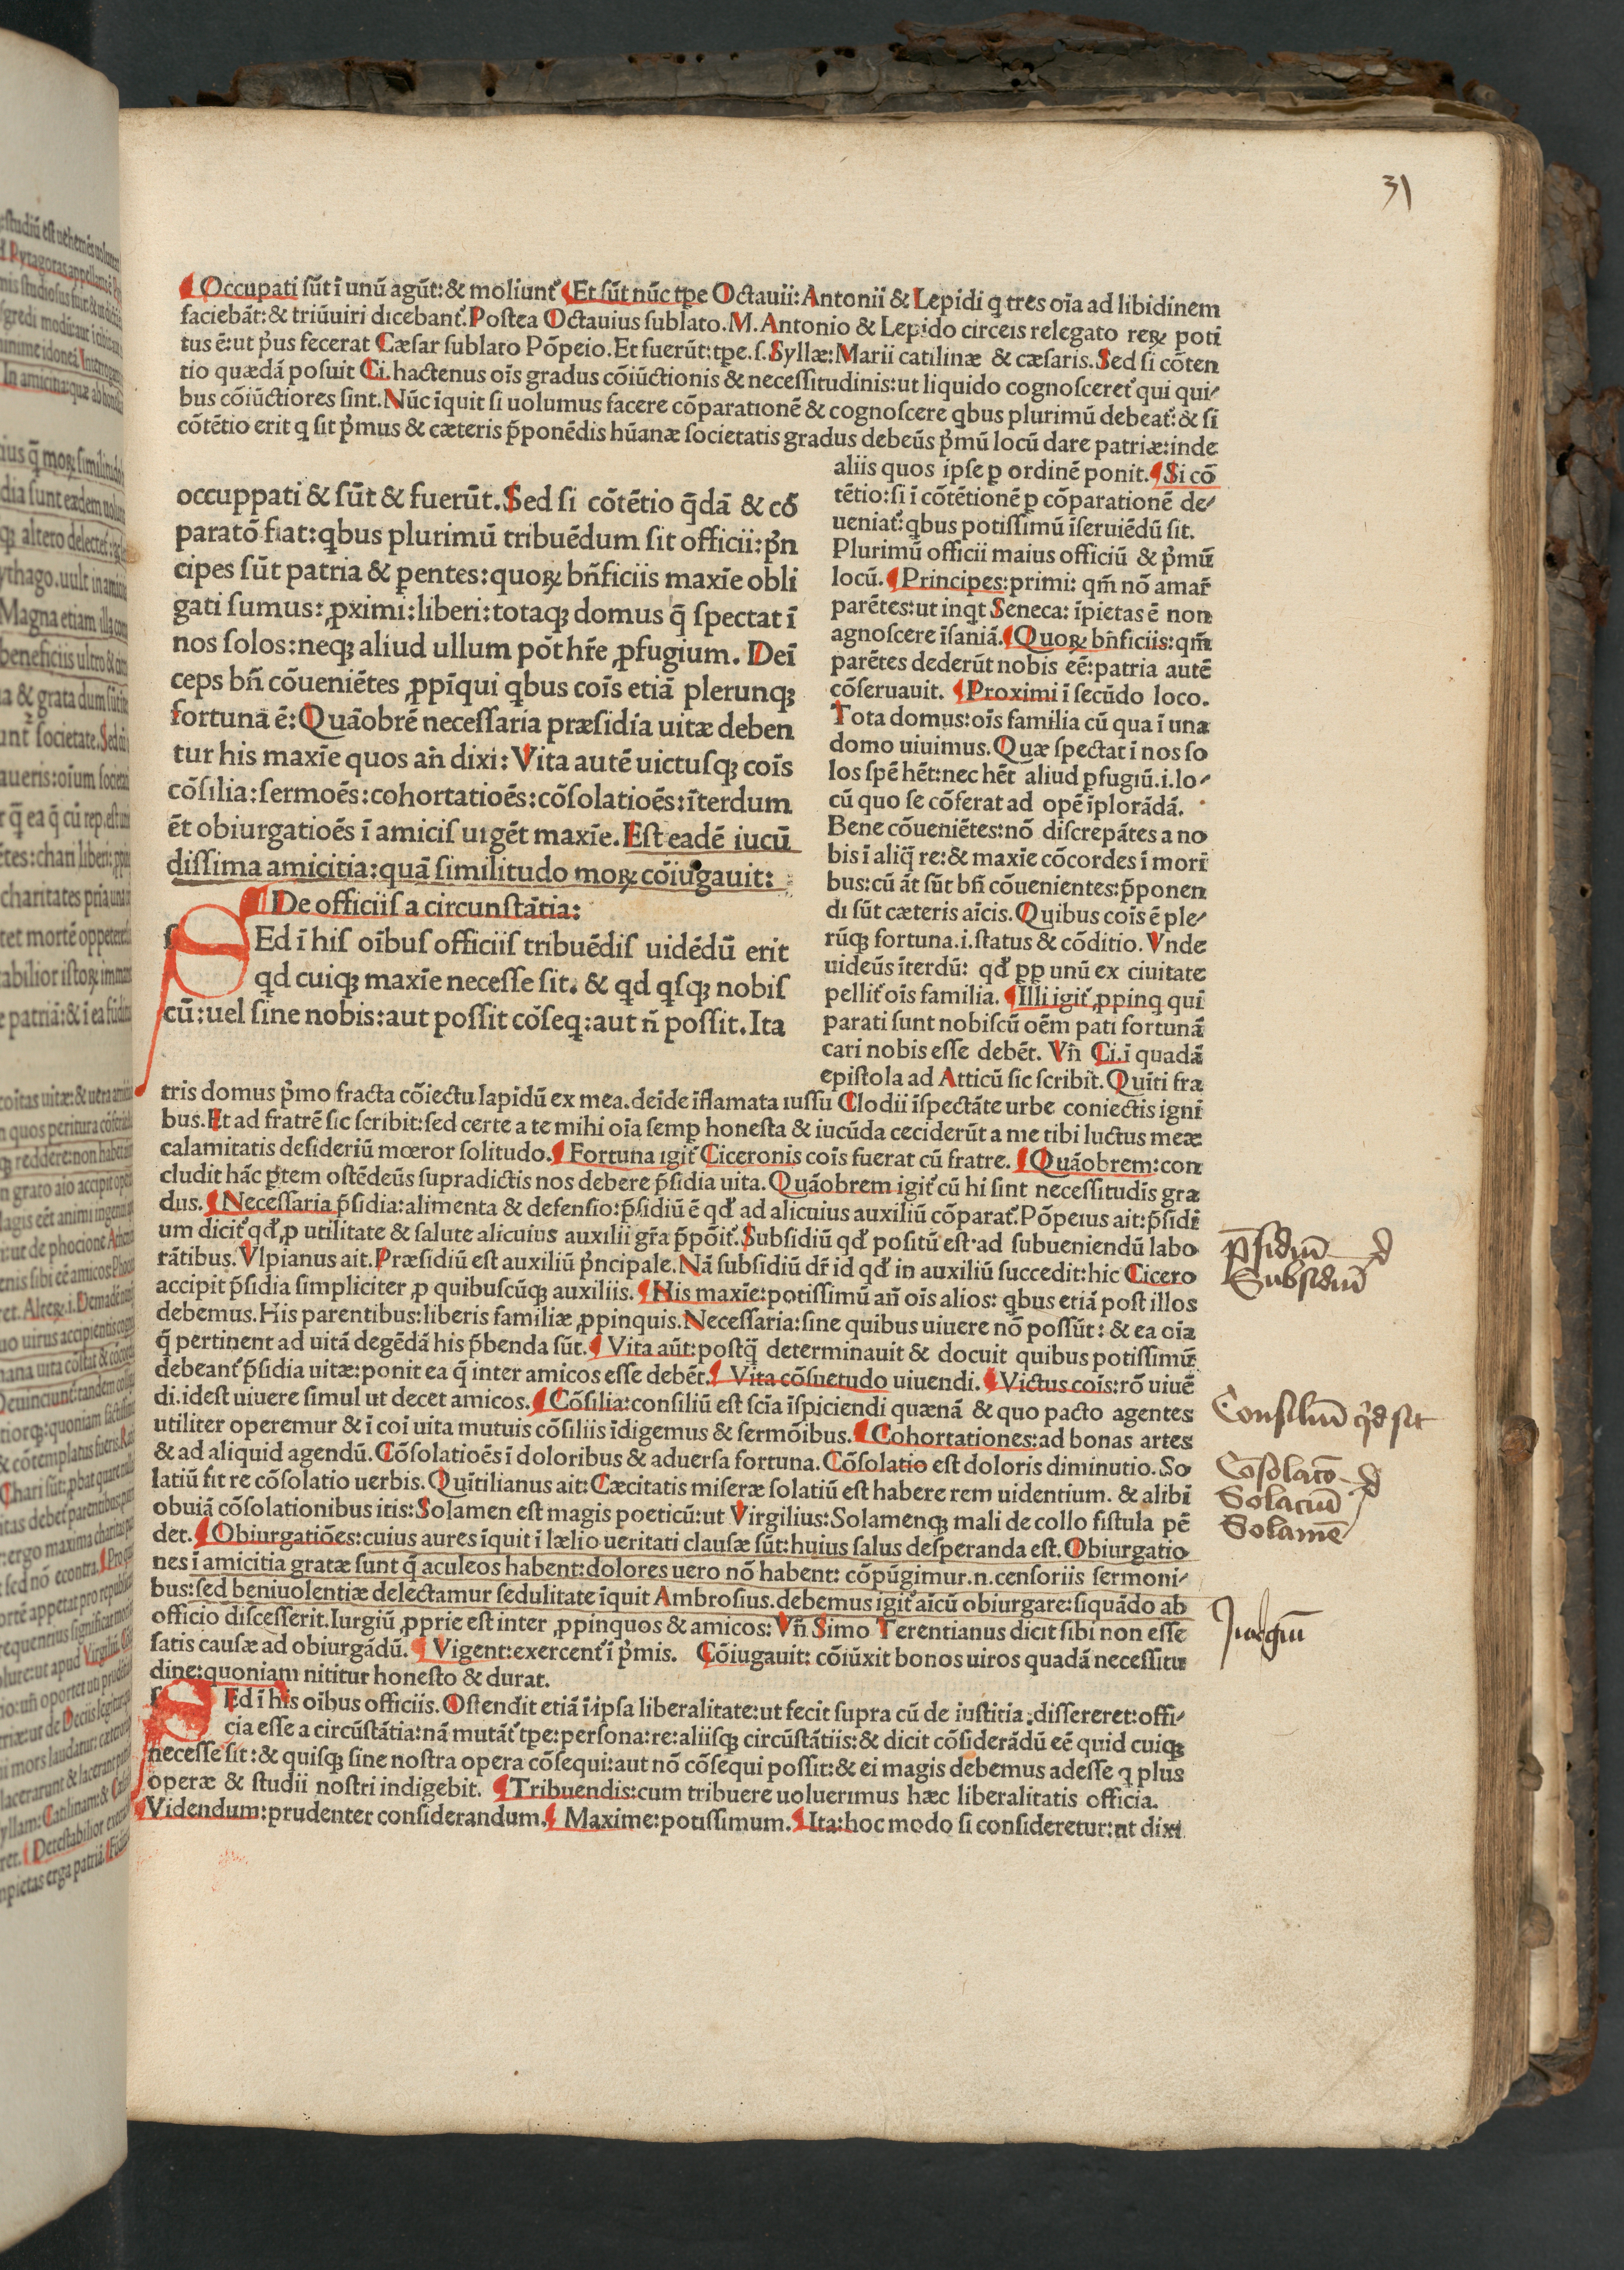 31
¶ Occupati sūt ī unū agūt: & moliunt᷑ ¶ Et sūt nūc tp̄e Octauii: Antonii & Lepidi q tres oīa ad libidinem
faciebāt: & triūuiri dicebant᷑. Postea Octauius sublato. M. Antonio & Lepido circeis relegato reꝝ poti
tus ē: ut p̄us fecerat Cæsar sublato Pōpeio. Et fuerūt: tp̄e. s. Syllæ: Marii catilinæ & cæsaris. Sed si cōten
tio quædā posuit Ci. hactenus oīs gradus cōiūctionis & necessitudinis: ut liquido cognosceret᷑ qui qui-
bus cōiūctiores sint. Nūc īquit si uolumus facere cōparationē & cognoscere qbus plurimū debeat᷑: & si
cōtētio erit q sit p̄mus & cæteris p̄ponēdis hūanæ societatis gradus debeūs p̄mū locū dare patriæ: inde
aliis quos ipse ꝑ ordinē ponit. ¶ Si cō
tētio: si ī cōtētionē ꝑ cōparationē de-
ueniat᷑: qbus potissimū īseruiēdū sit.
Plurimū officii maius officiū & p̄mū
locū. ¶ Principes: primi: qm̄ nō amar̄
parētes: ut inqt Seneca: īpietas ē non
agnoscere īsaniā. ¶ Quoꝝ bn̄ficiis: qm̄
parētes dederūt nobis eē: patria autē
cōseruauit. ¶ Proximi ī secūdo loco.
Tota domus: oīs familia cū qua ī una
domo uiuimus. Quæ spectat ī nos so
los spē hēt: nec hēt aliud ꝑfugiū. i. lo-
cū quo se cōferat ad opē īplorādā.
Bene cōueniētes: nō discrepātes a no
bis ī aliq̄ re: & maxīe cōcordes ī mori
bus: cū āt sūt bn̄ cōuenientes: p̄ponen
di sūt cæteris aīcis. Quibus coīs ē ple-
rūqꝫ fortuna. i. status & cōditio. Vnde
uideūs īterdū: qd̄ ꝓꝑ unū ex ciuitate
pellit᷑ oīs familia. ¶ Illi igit᷑ ꝓpinq qui
parati sunt nobiscū oēm pati fortunā
cari nobis esse debēt. Vn̄ Ci. ī quadā
epistola ad Atticū sic scribit. Quīti fra
occuppati & sūt & fuerūt. Sed si cōtētio q̄dā & cō
paratō fiat: qbus plurimū tribuēdum sit officii: p̄n
cipes sūt patria & ꝑentes: quoꝝ bn̄ficiis maxīe obli
gati sumus: ꝓximi: liberi: totaqꝫ domus q̄ spectat ī
nos solos: neqꝫ aliud ullum pōt hr̄e ꝓfugium. Deī
ceps bn̄ cōueniētes ꝓpīqui qbus coīs etiā plerunqꝫ
fortunā ē: Quāobrē necessaria præsidia uitæ deben
tur his maxīe quos an̄ dixi: Vita autē uictusqꝫ coīs
cōsilia: sermoēs: cohortatioēs: cōsolatioēs: īterdum
ēt obiurgatioēs ī amicis uigēt maxīe. Est eadē iucū
dissima amicitia: quā similitudo moꝝ cōiugauit:
¶ De officiis a circunstātia:
SEd ī his oībus officiis tribuēdis uidēdū erit
qd cuiqꝫ maxīe necesse sit. & qd qsqꝫ nobis
cū: uel sine nobis: aut possit cōseq: aut n̄ possit. Ita
tris domus p̄mo fracta cōiectu lapidū ex mea. deīde īflamata iussu Clodii īspectāte urbe coniectis igni
bus. Et ad fratrē sic scribit: sed certe a te mihi oīa semꝑ honesta & iucūda ceciderūt a me tibi luctus meæ
calamitatis desideriū mœror solitudo. ¶ Fortuna igit᷑ Ciceronis coīs fuerat cū fratre. ¶ Quāobrem: con
cludit hāc ꝑtem ostēdeūs supradictis nos debere p̄sidia uita. Quāobrem igit᷑ cū hi sint necessitudīs gra
dus. ¶ Necessaria p̄sidia: alimenta & defensio: p̄sidiū ē qd̄ ad alicuius auxiliū cōparat᷑. Pōpeius ait: p̄sidi
um dicit᷑ qd̄ ꝓ utilitate & salute alicuius auxilii gr̄a p̄pōit᷑. Subsidiū qd̄ positū est ad subueniendū labo
rātibus. Vlpianus ait. Præsidiū est auxiliū p̄ncipale. Nā subsidiū dr̄ id qd̄ in auxiliū succedit: hic Cicero
accipit p̄sidia simpliciter ꝓ quibuscūqꝫ auxiliis. ¶ His maxīe: potissimū an̄ oīs alios: qbus etiā post illos
debemus. His parentibus: liberis familiæ ꝓpinquis. Necessaria: sine quibus uiuere nō possūt: & ea oīa
q̄ pertinent ad uitā degēdā his p̄benda sūt. ¶ Vita aūt: postq̄ determinauit & docuit quibus potissimū
debeant᷑ p̄sidia uitæ: ponit ea q̄ inter amicos esse debēt. ¶ Vita cōsuetudo uiuendi. ¶ Victus coīs: rō uiuē
di. idest uiuere simul ut decet amicos. ¶ Cōsilia: consiliū est scīa īspiciendi quænā & quo pacto agentes
utiliter operemur & ī coī uita mutuis cōsiliis īdigemus & sermōibus. ¶ Cohortationes: ad bonas artes
& ad aliquid agendū. Cōsolatioēs ī doloribus & aduersa fortuna. Cōsolatio est doloris diminutio. So
latiū fit re cōsolatio uerbis. Quītilianus ait: Cæcitatis miseræ solatiū est habere rem uidentium. & alibi
obuiā cōsolationibus itis: Solamen est magis poeticū: ut Virgilius: Solamenqꝫ mali de collo fistula pē
det. ¶ Obiurgatiōes: cuius aures īquit ī lælio ueritati clausæ sūt: huius salus desperanda est. Obiurgatio
nes ī amicitia gratæ sunt q̄ aculeos habent: dolores uero nō habent: cōpūgimur. n. censoriis sermoni-
bus: sed beniuolentiæ delectamur sedulitate īquit Ambrosius. debemus igit᷑ aīcū obiurgare: siquādo ab
officio discesserit. Iurgiū ꝓprie est inter ꝓpinquos & amicos: Vn̄ Simo Terentianus dicit sibi non esse
satis causæ ad obiurgādū. ¶ Vigent: exercent᷑ ī p̄mis. Cōiugauit: cōiūxit bonos uiros quadā necessitu
dine: quoniam nititur honesto & durat.
SEd ī his oibus officiis. Ostendit etiā ī ipsa liberalitate: ut fecit supra cū de iustitia dissereret: offi-
cia esse a circūstātia: nā mutāt᷑ tp̄e: persona: re: aliisqꝫ circūstātiis: & dicit cōsiderādū eē quid cuiqꝫ
necesse sit: & quisqꝫ sine nostra opera cōsequi: aut nō cōsequi possit: & ei magis debemus adesse q plus
operæ & studii nostri indigebit. ¶ Tribuendis: cum tribuere uoluerimus hæc liberalitatis officia.
¶ Videndum: prudenter considerandum. ¶ Maxime: potissimum. ¶ Ita: hoc modo si consideretur: ut dixi
p̄sidiū
Subsidiū
Consiliū qd sit
Cōsolatō
Solaciū
Solamē
Iurgiū